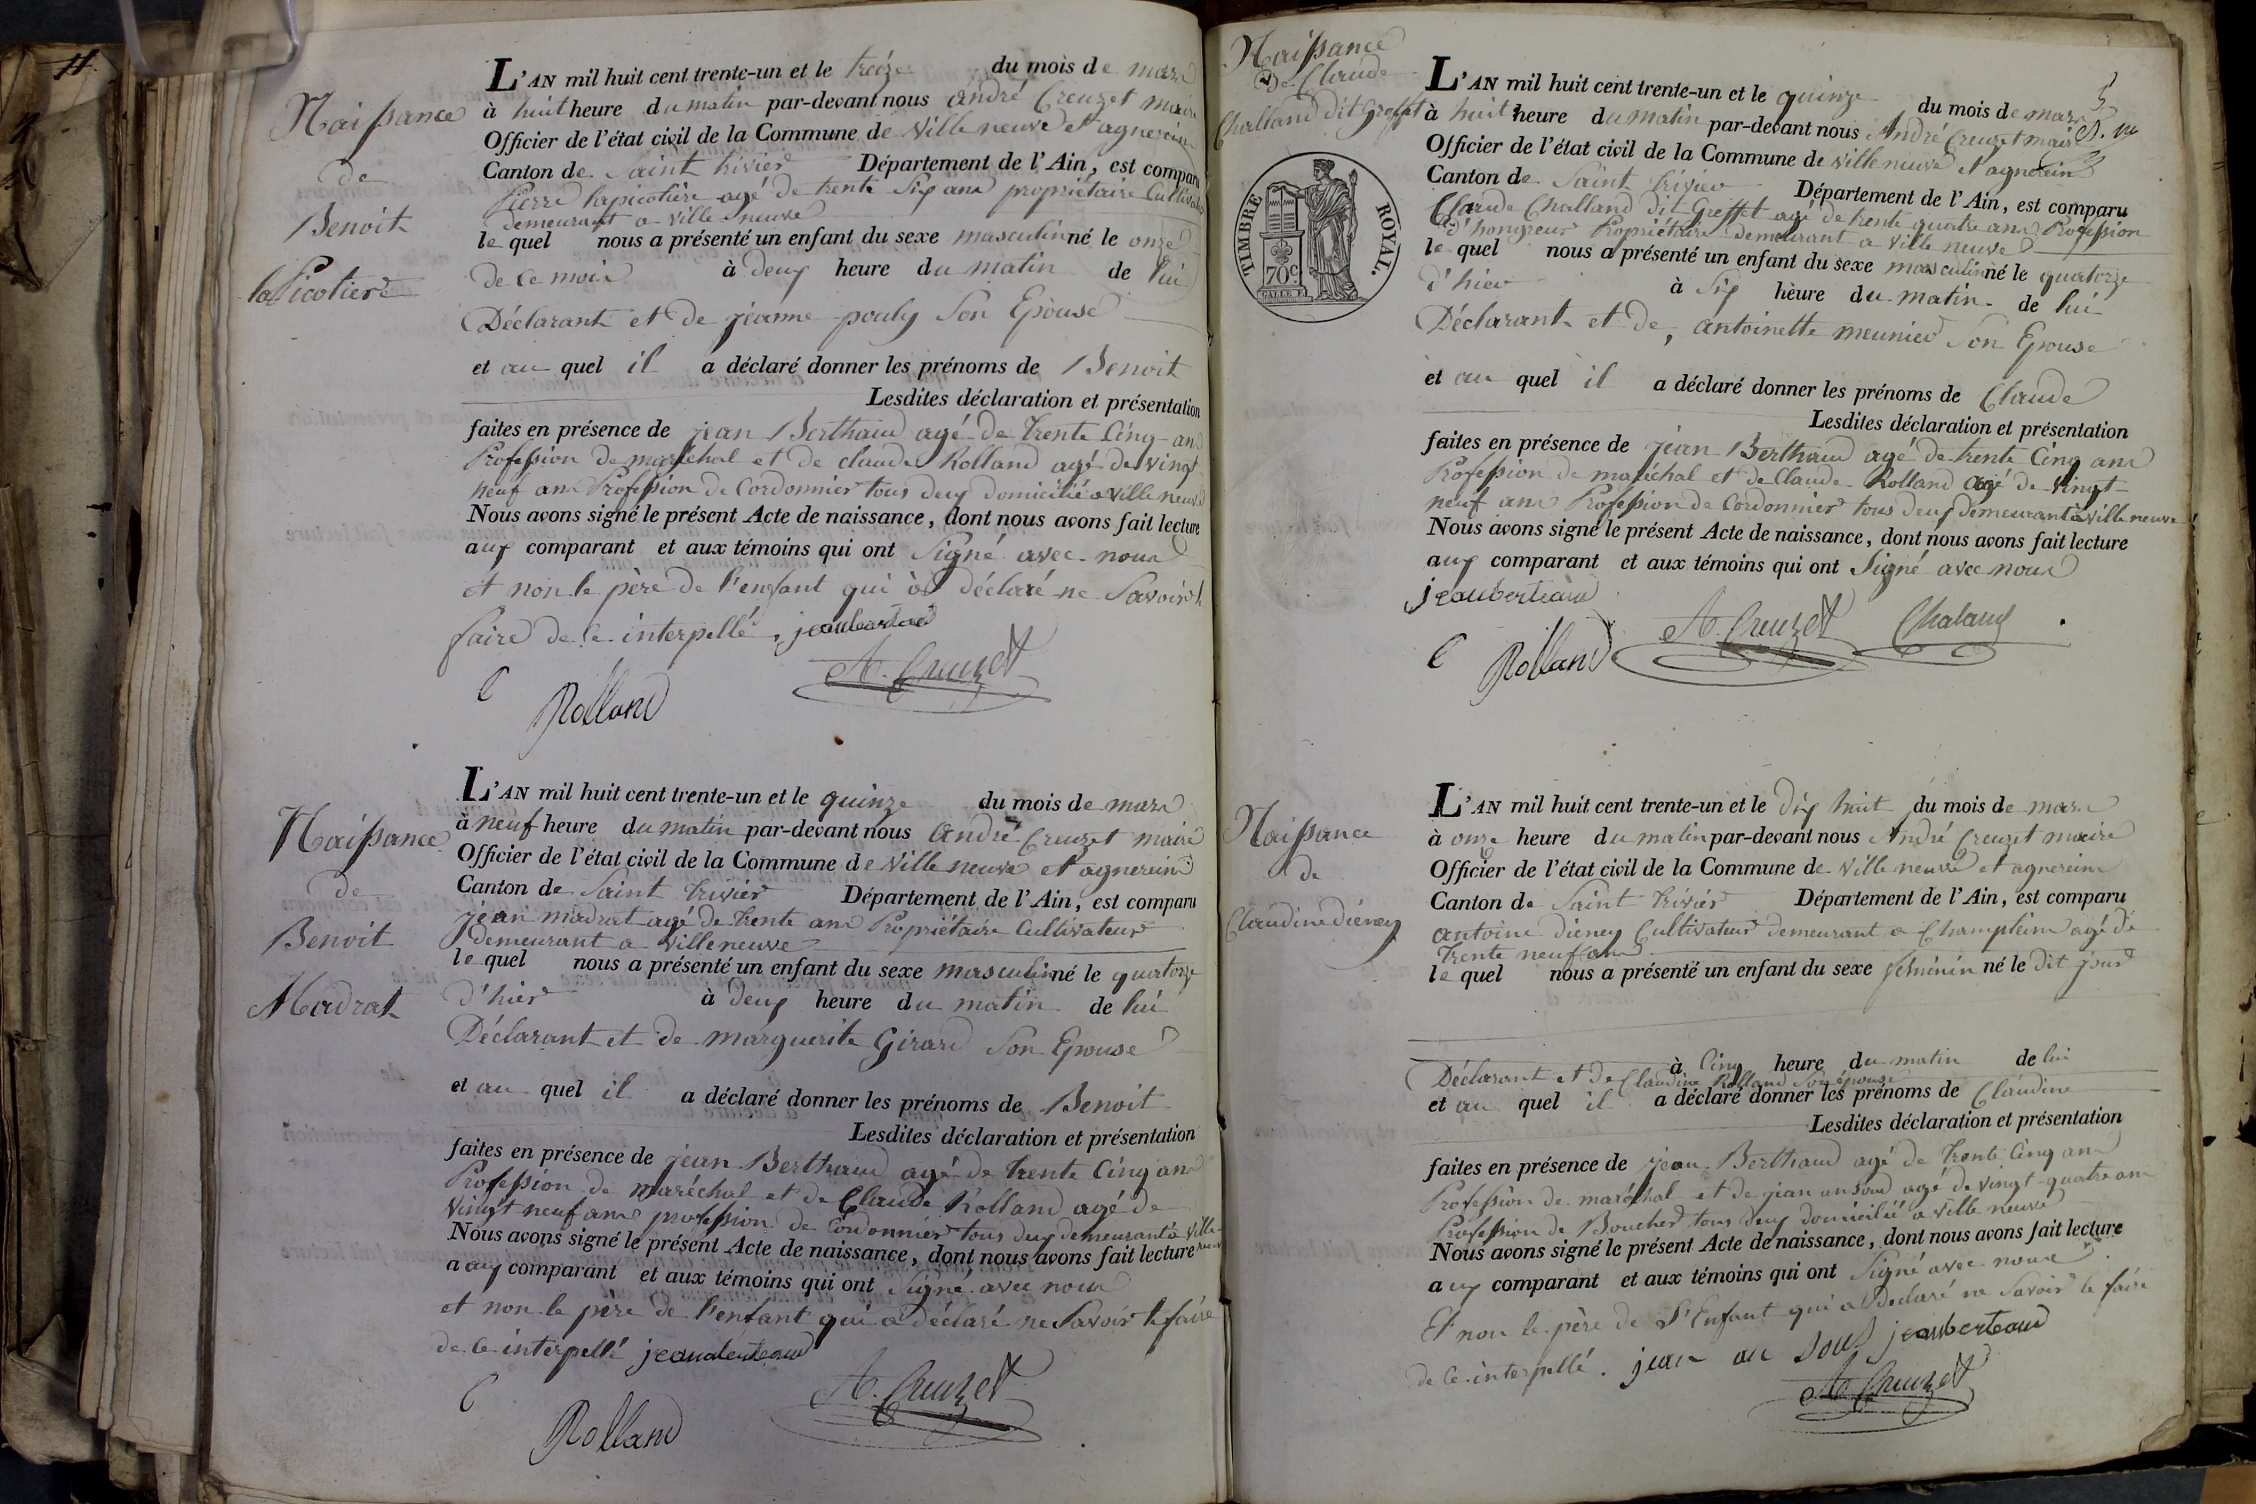 Naissance
de
Benoit
lapicotiere
L'AN mil huit cent trente-un et le treize du mois de mars
à huit heure du matin par-devant nous andré Creuzet maire
Officier de l'état civil de la Commune de Villeneuve et agnereins
Canton de Saint trivier Département de l'Ain, est comparu
Pierre lapicotière agé de trente Six ans propriétaire Cultivateur
demeurant a Villeneuve
le quel nous a présenté un enfant du sexe masculin né le onze
de ce mois à deux heure du matin de lui
Déclarant et de jeanne pouly Son Epouse
et au quel il a déclaré donner les prénoms de Benoit
Lesdites déclaration et présentation
faites en présence de jean Berthaud agé de trente Cinq ans
Profession de maréchal et de claude Rolland agé de vingt
neuf ans Profession de Cordonnier tous deux domicilié a Villeneuve
Nous avons signé le présent Acte de naissance, dont nous avons fait lecture
aux comparant et aux témoins qui ont Signé avec nous
et non le père de l'enfant qui à déclaré ne Savoir le
faire de ce interpellé. jeanberteaud
A. Creuzet
C Rolland
Naissance
de
Benoit
Madrat
L'AN mil huit cent trente-un et le quinze du mois de mars
à neuf heure du matin par-devant nous andré Creuzet maire
Officier de l'état civil de la Commune de Villeneuve et agnereins
Canton de Saint trivier Département de l'Ain, est comparu
jean madrat agé de trente ans Propriétaire Cultivateur
demeurant a Villeneuve
le quel nous a présenté un enfant du sexe masculin né le quatorze
d'hier à deux heure du matin de lui
Déclarant et de marguerite Girard Son Epouse
et au quel il a déclaré donner les prénoms de Benoit
Lesdites déclaration et présentation
faites en présence de jean Berthaud agé de trente Cinq ans
Profession de maréchal et de Claude Rolland agé de
vingt neuf ans profession de Cordonnier tous deux demeurant à Ville
neuve
Nous avons signé le présent Acte de naissance, dont nous avons fait lecture
aux comparant et aux témoins qui ont Signé avec nous
et non le père de l'enfant qui a déclaré ne Savoir le faire
de ce interpellé jeanberteaud
A. Creuzet
C Rolland
Naissance
De Claude
Challand dit Greffet
TIMBRE ROYAL.
70c
L'AN mil huit cent trente-un et le quinze du mois de mars
à huit heure du matin par-devant nous André Creuzet maire
Officier de l'état civil de la Commune de Villeneuve et agnereins
Canton de Saint trivier Département de l'Ain, est comparu
Claude Challand dit Greffet agé de trente quatre ans Profession
d'hongreur Propriétaire demeurant a Villeneuve
le quel nous a présenté un enfant du sexe masculin né le quatorze
d'hier à Six heure du matin de lui
Déclarant et de, antoinette meunier Son Epouse
et au quel il a déclaré donner les prénoms de Claude
Lesdites déclaration et présentation
faites en présence de jean Berthaud agé de trente Cinq ans
Profession de maréchal et de Claude Rolland agé de vingt
neuf ans Profession de Cordonnier tous deux demeurant à Villeneuve
Nous avons signé le présent Acte de naissance, dont nous avons fait lecture
aux comparant et aux témoins qui ont Signé avec nous
jeanberteaud
A. Creuzet Chaland
C Rolland
Naissance
de
Claudine diéney
L'AN mil huit cent trente-un et le dix huit du mois de mars
à onze heure du matin par-devant nous André Creuzet maire
Officier de l'état civil de la Commune de Villeneuve et agnereins
Canton de Saint trivier Département de l'Ain, est comparu
antoine diéney Cultivateur demeurant a Champteins agé de
trente neuf ans
le quel nous a présenté un enfant du sexe féminin né le dit jour
à Cinq heure du matin de lui
Déclarant et de Claudine Rolland Son épouse
et au quel il a déclaré donner les prénoms de Claudine
Lesdites déclaration et présentation
faites en présence de jean Berthaud agé de trente Cinq ans
Profession de maréchal et de jean ansoud agé de vingt-quatre ans
Profession de Boucher tous deux domicilié a Villeneuve
Nous avons signé le présent Acte de naissance, dont nous avons fait lecture
aux comparant et aux témoins qui ont Signé avec nous
Et non le père de l'Enfant qui a déclaré ne Savoir le faire
de ce interpellé. jean an soud jeanberteaud
A. Creuzet